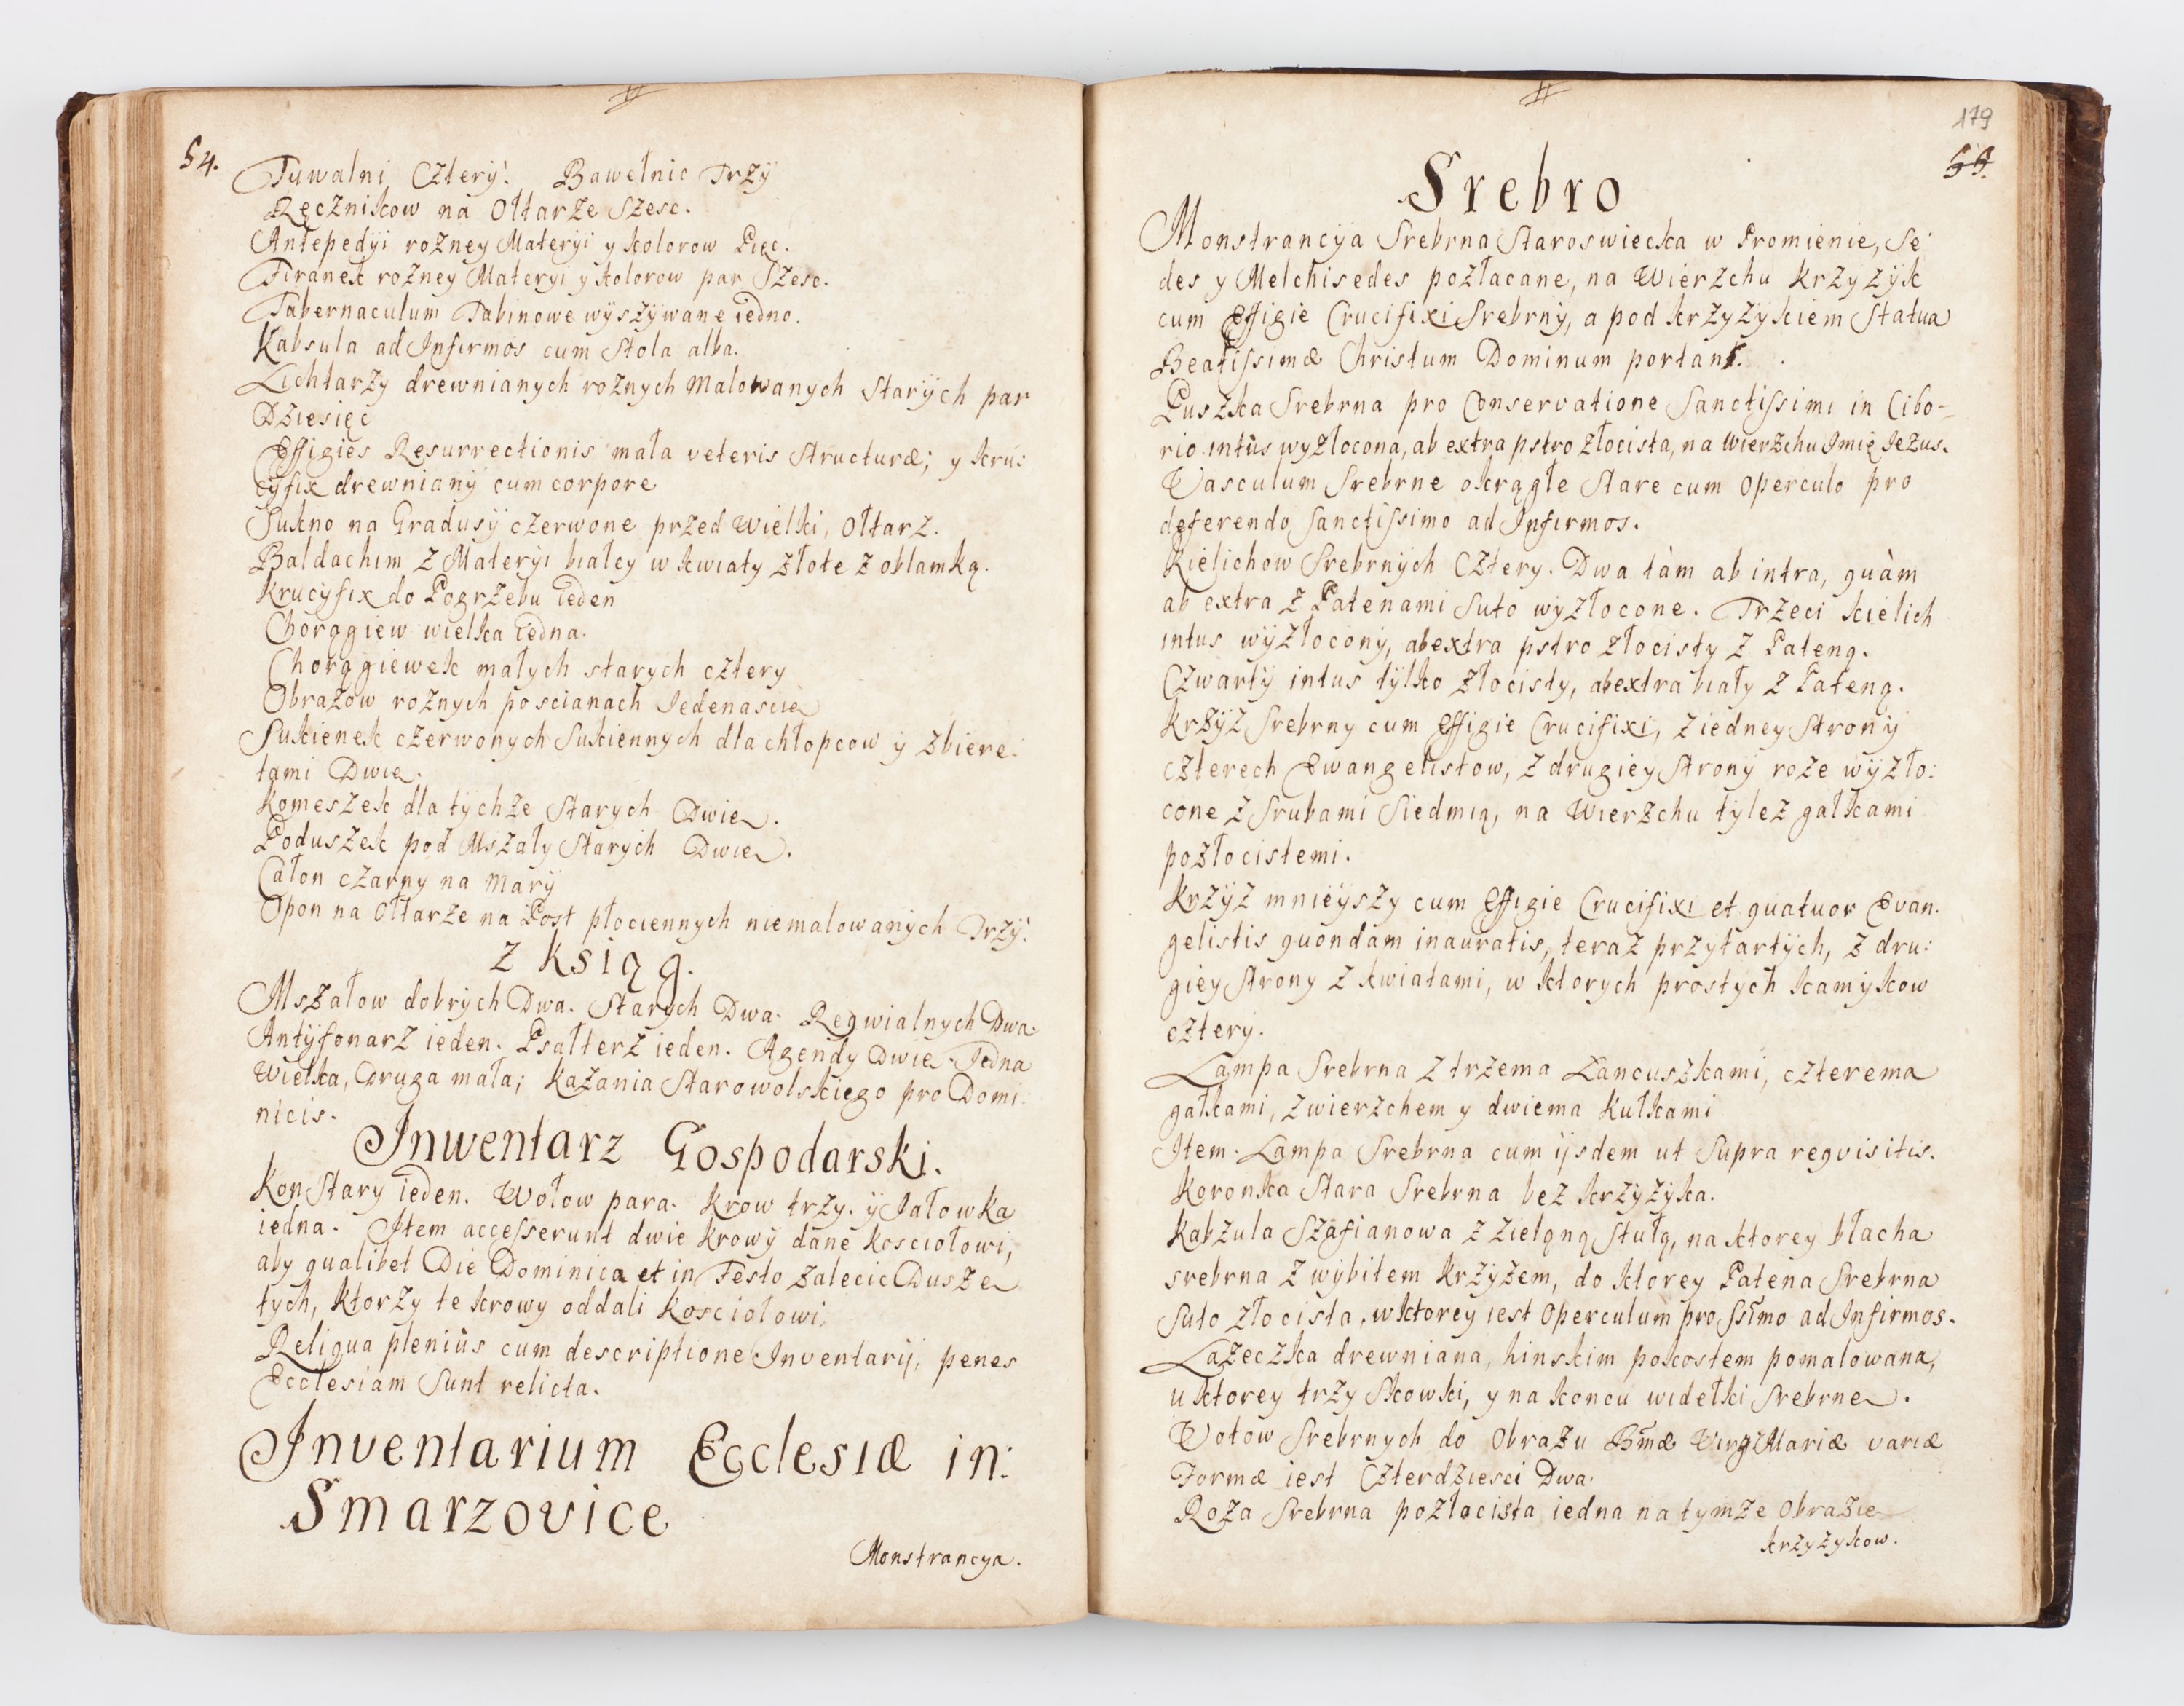 54.
Tuwalni Cztery. Bawełnic Trzy
Ręcznikow na Ołtarze Szesc.
Antepedyi rożney Materyi y kolorow Pięc.
Firanek rożney Materyi y kolorow par Szesc.
Tabernaculum Tabinowe wyszywane iedno.
Kabsula ad Infirmos cum Stola alba.
Lichtarzy drewnianych rożnych Malowanych Starych par
Dziesięc
Effigies Resurrectionis mała veteris Structuræ; y kru:
cyfix drewniany cum corpore
Sukno na Gradusy czerwone przed Wielki Ołtarz.
Baldachim z Materyi białey w kwiaty złote z oblamką.
Krucyfix do Pogrzebu ieden
Chorągiew wielka iedna.
Chorągiewek małych starych cztery
Obrazow rożnych poscianach Iedenascie
Sukienek czerwonych Sukiennych dla chłopcow y z biere:
tami Dwie.
Komeszek dla tychże Starych Dwie.
Poduszek pod Mszały Starych Dwie.
Całon czarny na Mary
Opon na Ołtarze na Post płociennych niemalowanych Trzy.
z Ksiąg.
Mszałow dobrych Dwa. Starych Dwa. Reqwialnych Dwa.
Antyfonarz ieden. Psałterz ieden. Agendy Dwie. Iedna
Wielka, Druga mała; Kazania Starowolskiego pro Domi
nicis.
Inwentarz Gospodarski.
Kon Stary ieden. Wołow para. Krow trzy. y Iałowka
iedna. Item accesserunt dwie Krowy dane Kosciołowi,
aby qualibet Die Dominica et in Festo zalecic Dusze
tych, ktorzy te krowy oddali Kosciołowi.
Reliqua pleniùs cum descriptione Inventarij, penes
Ecclesiam Sunt relicta.
Inventarium Ecclesiæ in:
Smarzovice
Monstrancya.
179
55.
Srebro
Monstrancya Srebrna Staroswiecka w Promienie, Se
des y Melchisedes pozłacane, na Wierzchu krzyżyk
cum Effigie Crucifixi Srebrny, a pod krzyżykiem Statua
Beatissimæ Christum Dominum portant.
Puszka Srebrna pro Conservatione Sanctissimi in Cibo-
rio intùs wyzłocona, ab extra pstro złocista, na wierzchu Imię Iezus.
Vasculum Srebrne okrągłe Stare cum operculo pro
deferendo Sanctissimo ad Infirmos.
Kielichow Srebrnych Cztery. Dwa tàm ab intra, quàm
ab extra z Patenami Suto wyzłocone. Trzeci kielich
intus wyzłocony, abextra pstro złocisty z Pateną.
Czwarty intus tylko złocisty, abextra biały z Pateną.
Krzyż Srebrny cum Effigie Crucifixi, z iedney Strony
czterech Ewangelistow, z drugiey Strony roże wyzło:
cone z Srubami Siedmią, na Wierzchu tyleż gałkami
pozłocistemi.
Krzyż mnieyszy cum Effigie Crucifixi et quatuor Evan.
gelistis quondam inauratis, teraz przytartych, z dru:
giey Strony z kwiatami, w ktorych prostych kamykow
cztery.
Lampa Srebrna z trzema Łancuszkami, czterema
gałkami, zwierzchem y dwiema Kułkami
Item. Lampa Srebrna cum ijsdem ut Supra reqvisitis.
Koronka Stara Srebrna bez krzyżyka.
Kabzula Szafianowa z zieloną Stułą, na ktorey błacha
srebrna z wybitem krzyżem, do ktorey Patena Srebrna
Suto złocista, w ktorey iest operculum pro Ssimo ad Infirmos.
Lazeczka drewniana, hinskim pokostem pomalowana,
u ktorey trzy Skowki, y na koncu widełki Srebrne.
Wotow Srebrnych do Obrazu Bmæ Virg: Mariæ variæ
Formæ iest Czterdziesci Dwa.
Roża Srebrna pozłocista iedna na tymże Obrazie
krzyżykow.